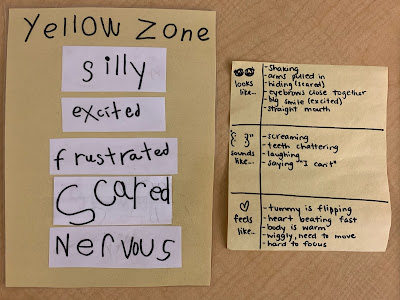 Yellow Zone
silly
excited
frustrated
Scared
Nervous
looks
like...
-shaking
-arms pulled in
-hiding (scared)
-eyebrows close together
-big smile (excited)
-straight mouth
sounds
like...
-screaming
-teeth chattering
-laughing
-saying "I can't"
feels
like...
-tummy is flipping
-heart beating fast
-body is warm
-wiggly, need to move
-hard to focus